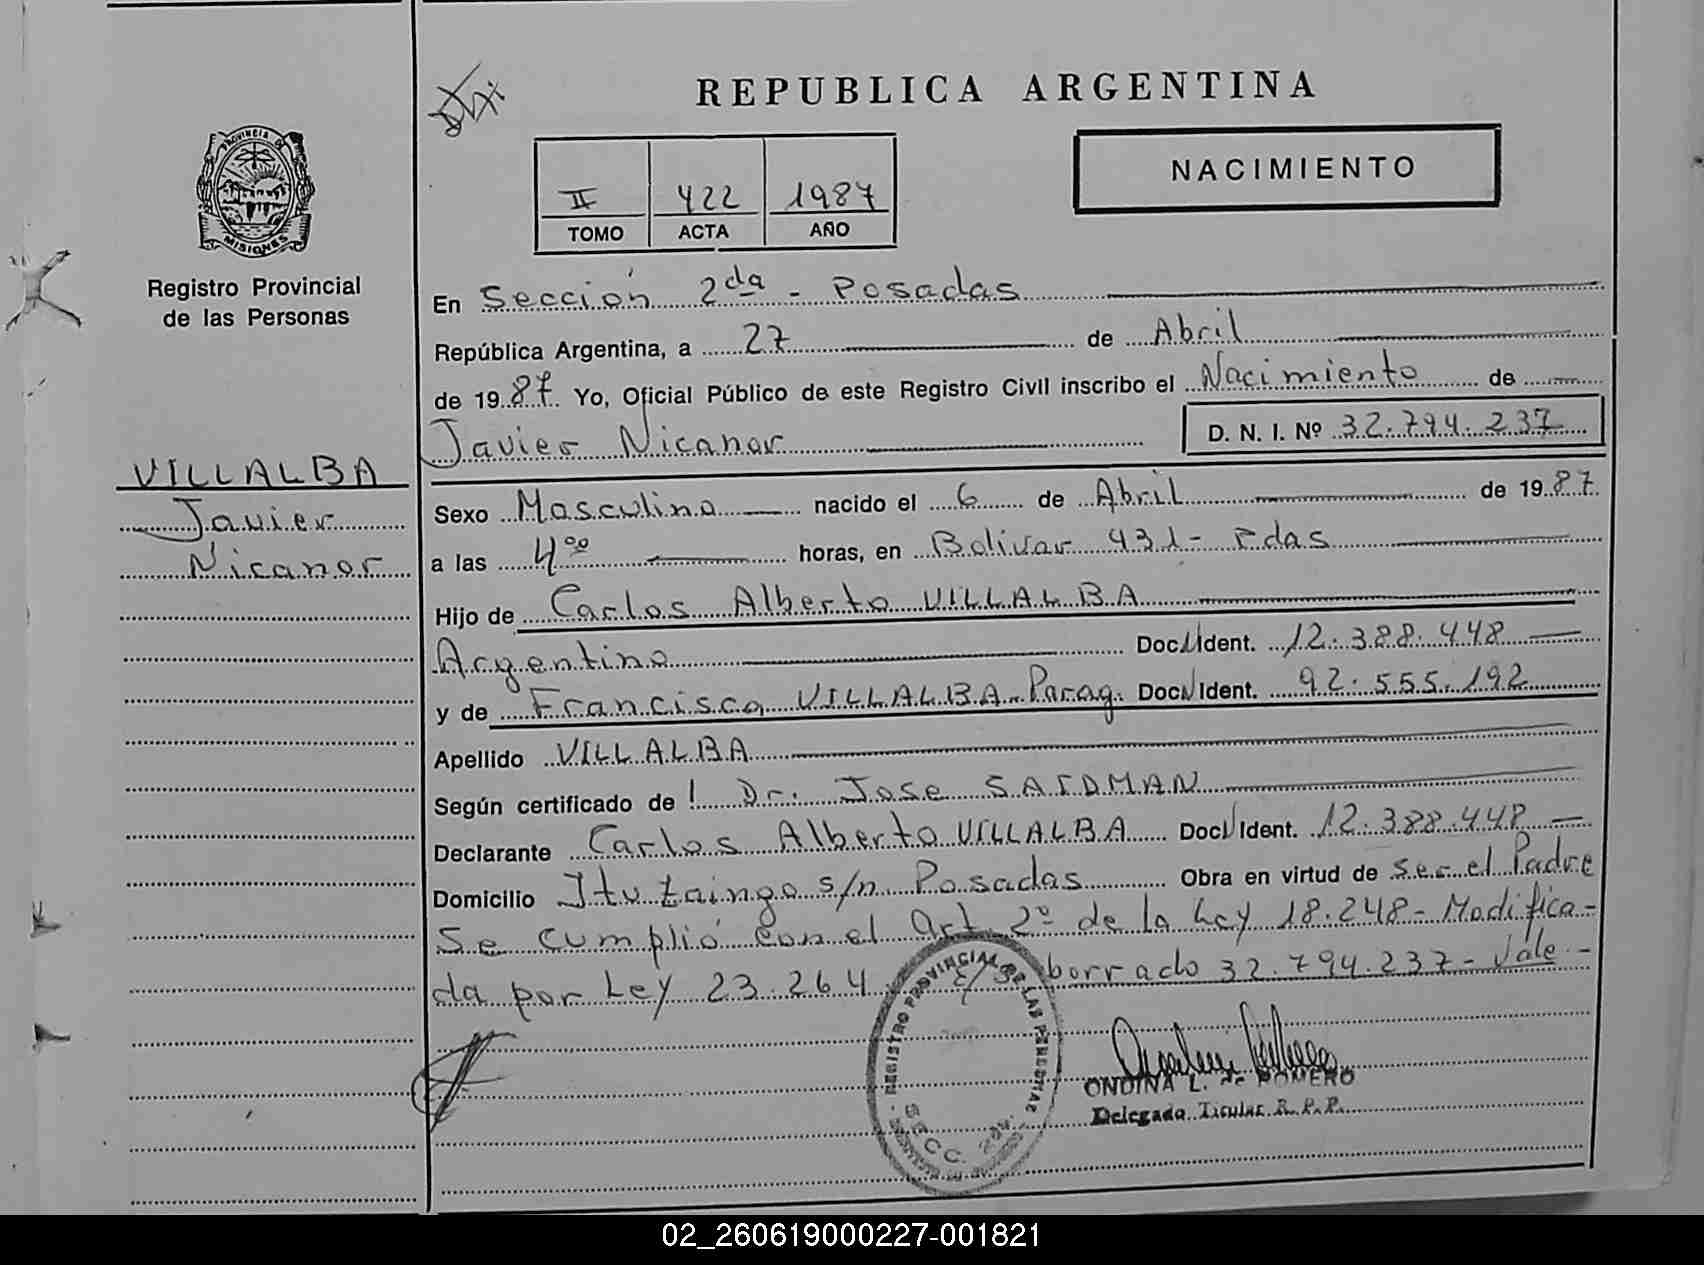 REPUBLICA ARGENTINA
PROVINCIA DE
MISIONES
Registro Provincial
de las Personas
II 422 1987
TOMO ACTA AÑO
NACIMIENTO
En Sección 2da - Posadas
República Argentina, a 27 de Abril
de 1987. Yo, Oficial Público de este Registro Civil inscribo el Nacimiento de
Javier Nicanor D. N. I. Nº 32.794.237
VILLALBA
Javier
Nicanor
Sexo Masculino nacido el 6 de Abril de 1987
a las 4°° horas, en Bolivar 431 - Pdas
Hijo de Carlos Alberto VILLALBA
Argentino Doc. Ident. 12.388.448
y de Francisca VILLALBA - Parag. Doc. Ident. 92.555.192
Apellido VILLALBA
Según certificado de Dr. Jose SAIDMAN
Declarante Carlos Alberto VILLALBA Doc. Ident. 12.388.448
Domicilio Ituzaingo s/n Posadas Obra en virtud de ser el Padre
Se cumplió con el Art 2º de la Ley 18.248 - Modifica-
da por Ley 23.264 borrado 32.794.237 - Vale -
REGISTRO PROVINCIAL DE LAS PERSONAS
SECC. 2da
ONDINA L. de ROMERO
Delegada Titular R. P. P.
02_260619000227-001821